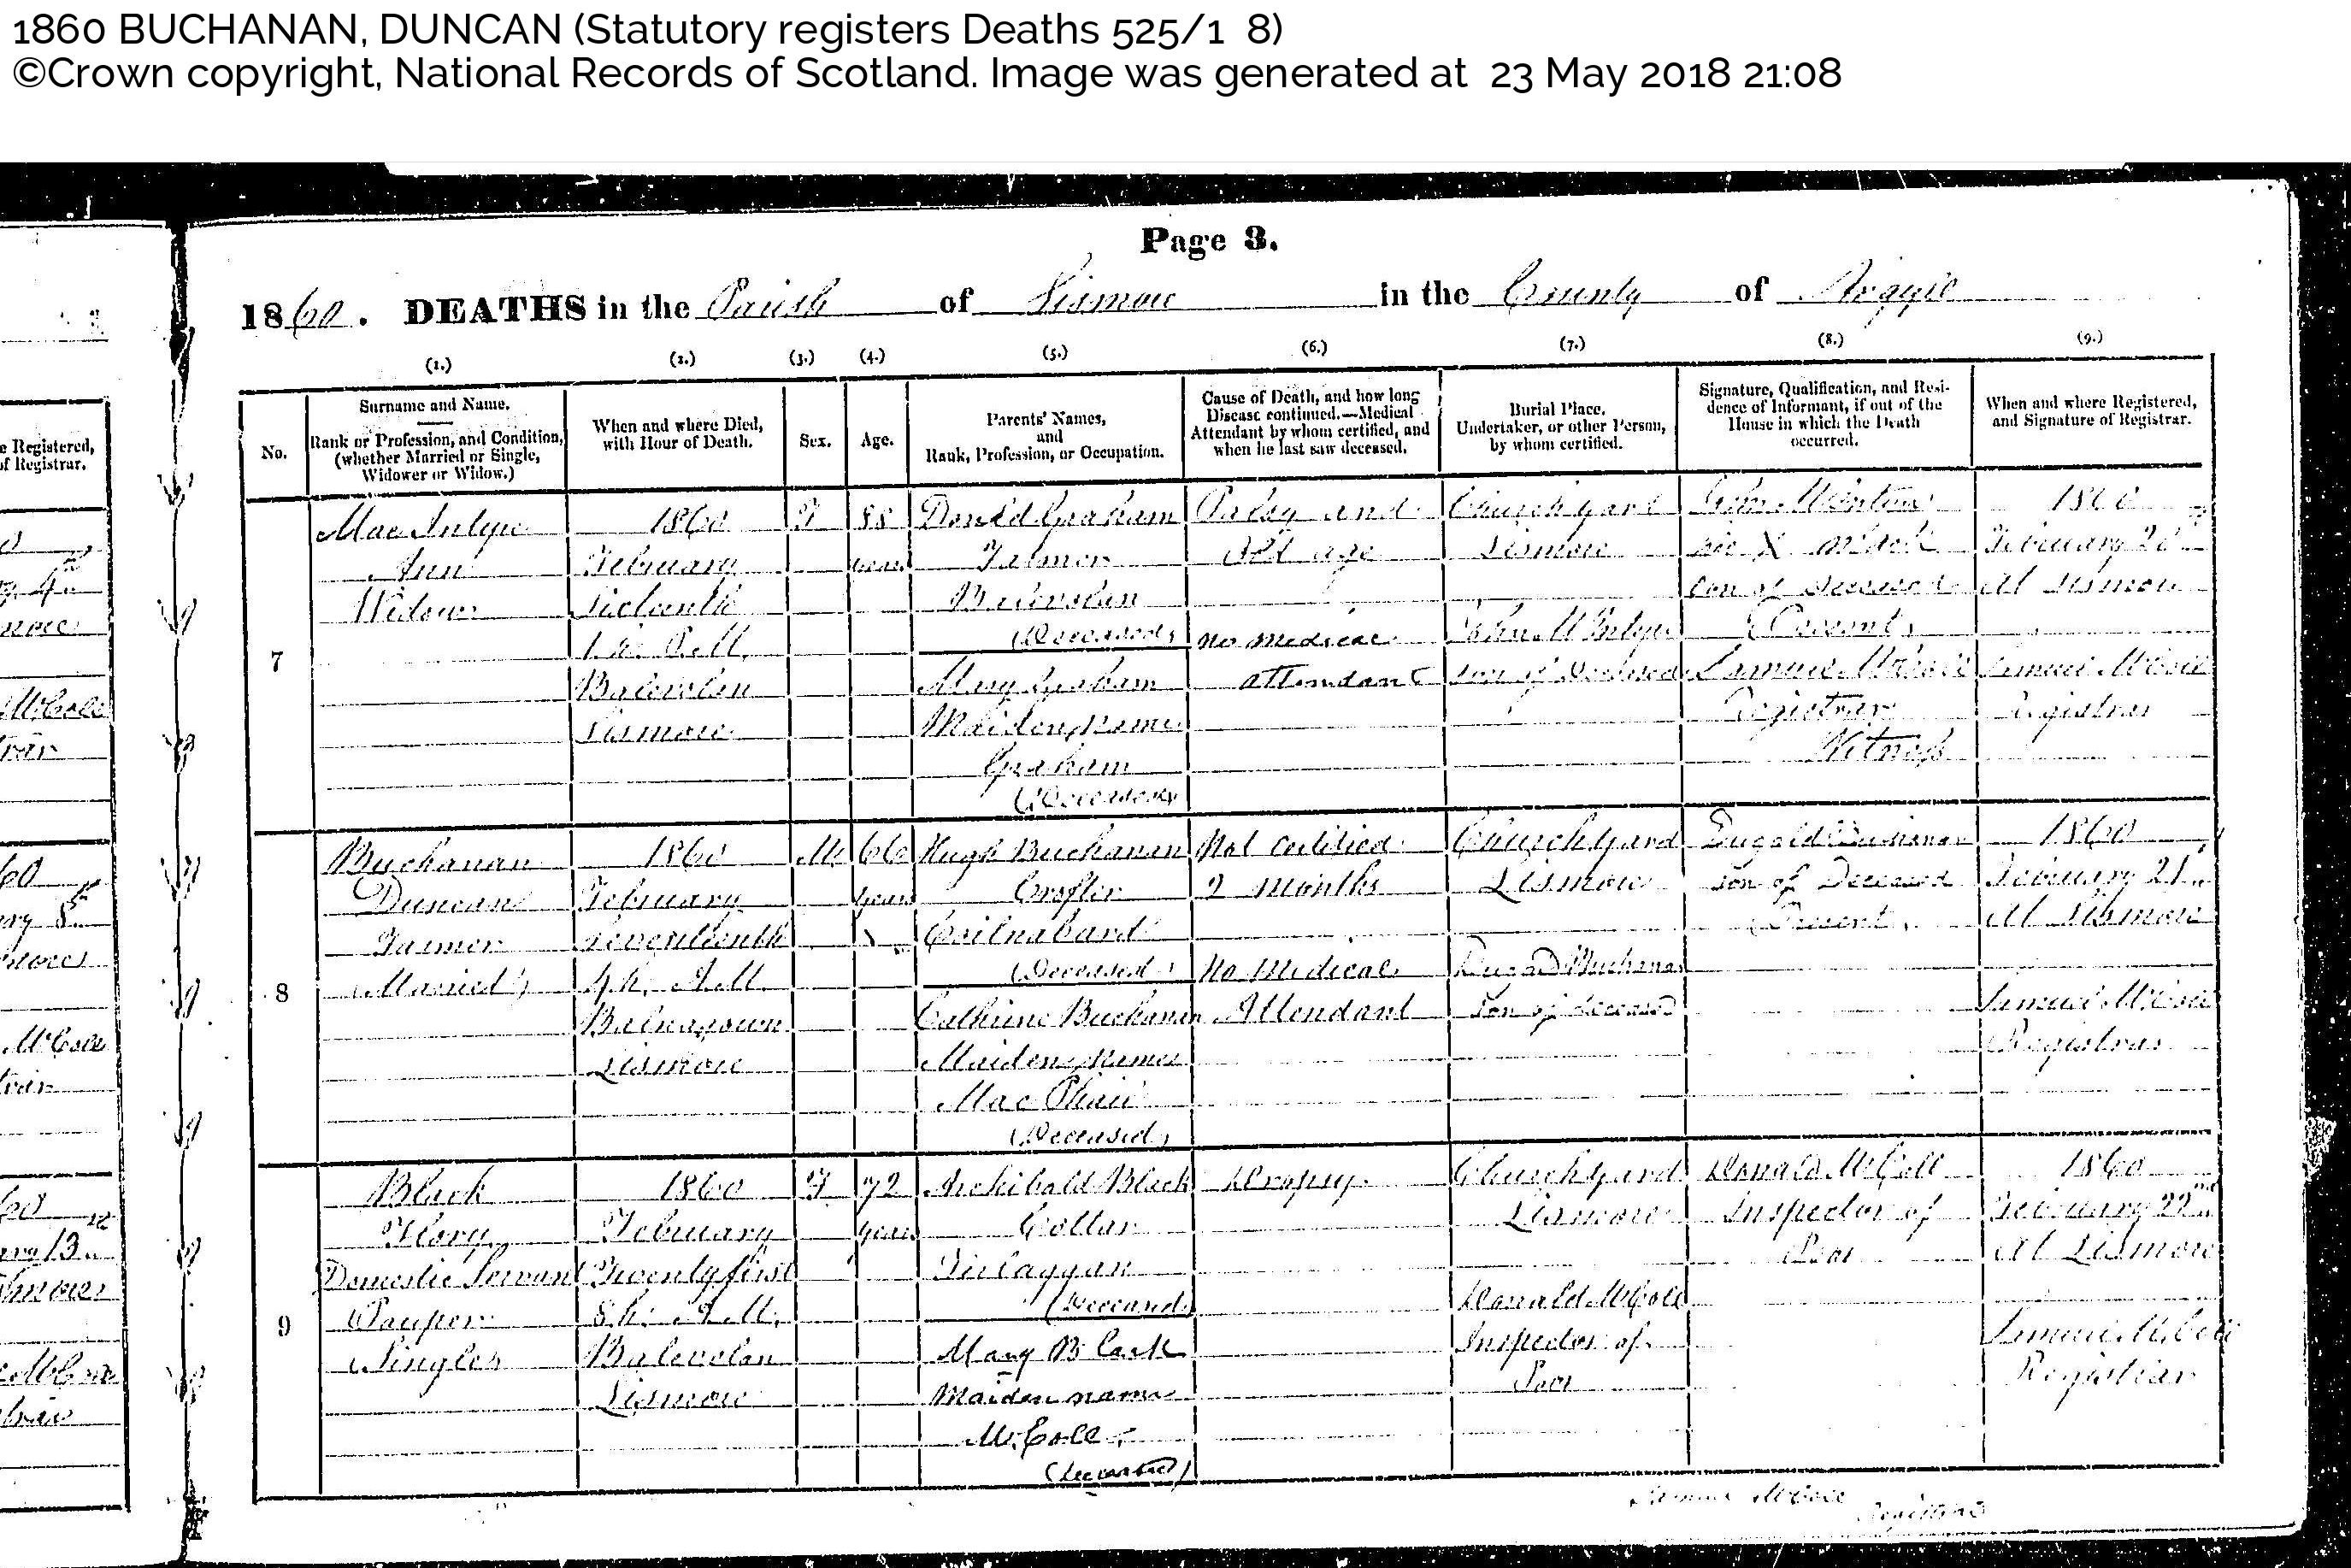 1860 BUCHANAN, DUNCAN (Statutory registers Deaths 525/1 8)
©Crown copyright, National Records of Scotland. Image was generated at 23 May 2018 21:08
Page 3.
1860. DEATHS in the Parish of Lismore in the County of Argyle
(1.) (2.) (3.) (4.) (5.) (6.) (7.) (8.) (9.)
No.
Surname and Name.
Rank or Profession, and Condition,
(whether Married or Single,
Widower or Widow.)
When and where Died,
with Hour of Death.
Sex.
Age.
Parents' Names,
and
Rank, Profession, or Occupation.
Cause of Death, and how long
Disease continued.—Medical
Attendant by whom certified, and
when he last saw deceased.
Burial Place.
Undertaker, or other Person,
by whom certified.
Signature, Qualification, and Resi-
dence of Informant, if out of the
House in which the Death
occurred.
When and where Registered,
and Signature of Registrar.
e Registered,
of Registrar.
7
Mac Intyre
Ann
Widow
1860
February
Sixteenth
P.M.
Balevolan
Lismore
F
88
years
Donald Graham
Farmer
Balevolan
(Deceased)
Mary Graham
Maiden name
Graham
(Deceased)
Palsy and
Old age
No medical
attendant
Churchyard
Lismore
John McIntyre
son of deceased
John McIntyre
his X mark
son of deceased
(Present)
Samuel McColl
Registrar
Witness
1860
February 20th
At Lismore
Samuel McColl
Registrar
8
Buchanan
Duncan
Farmer
(Married)
1860
February
Seventeenth
4h. A.M.
Balnagown
Lismore
M
66
years
Hugh Buchanan
Crofter
(Deceased)
Catherine Buchanan
Maiden name
Mac Phail
(Deceased)
Not certified
2 months
No Medical
Attendant
Churchyard
Lismore
Dugald Buchanan
son of deceased
Dugald Buchanan
son of Deceased
(Present)
1860
February 21st
At Lismore
Samuel McColl
Registrar
9
Black
Flory
Domestic Servant
Pauper
(Single)
1860
February
Twenty first
8h. A.M.
Balevolan
Lismore
F
72
years
Archibald Black
Cottar
(Deceased)
Mary Black
Maiden name
McColl
(deceased)
Dropsy
Churchyard
Lismore
Donald McColl
Inspector of
Poor
Donald McColl
Inspector of
Poor
1860
February 22nd
At Lismore
Samuel McColl
Registrar
Samuel McColl
Registrar